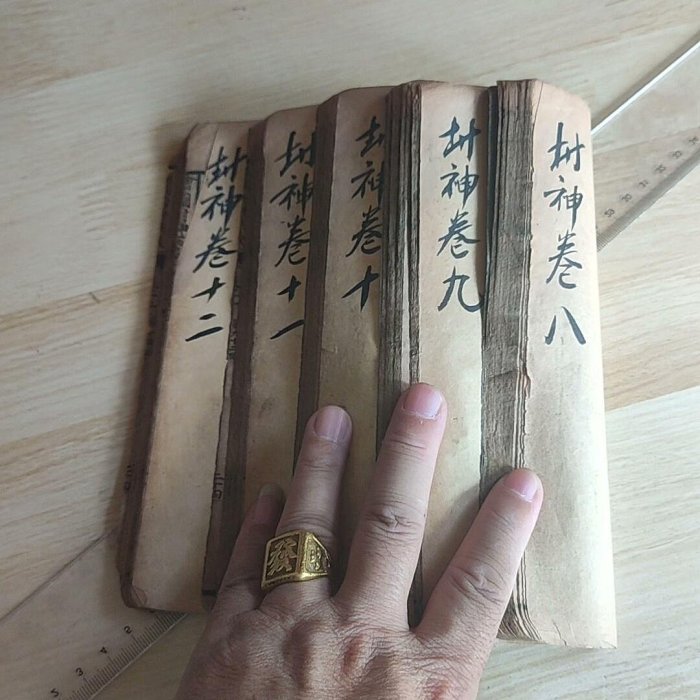 封神卷八
封神卷九
封神卷十
封神卷十一
封神卷十二
發